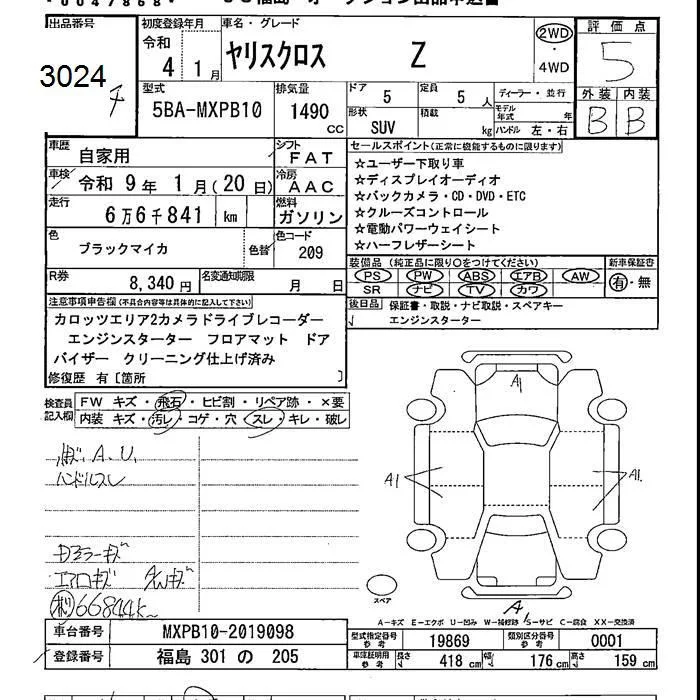 出品番号
3024
初度登録年月
令和
4 1月
車名・グレード
ヤリスクロス Z
2WD
4WD
評価点
5
外装 内装
B B
型式
5BA-MXPB10
排気量
1490
CC
ドア 5
定員 5 人
形状 SUV
積載 kg
ディーラー・並行
モデル年式 年
ハンドル 左・右
車歴
自家用
シフト
FAT
車検
令和 9年 1月(20日)
冷房
AAC
走行
6万6千841 km
燃料
ガソリン
色
ブラックマイカ
色替
色コード
209
R券
8,340 円
名変通知期限
月 日
セールスポイント(正常に機能するものに限ります)
☆ユーザー下取り車
☆ディスプレイオーディオ
☆バックカメラ・CD・DVD・ETC
☆クルーズコントロール
☆電動パワーウェイシート
☆ハーフレザーシート
装備品(純正品に限り○をつけてください)
新車保証書
PS PW ABS エアB AW
SR ナビ TV カワ
有・無
後日品 保証書・取説・ナビ取説・スペアキー
エンジンスターター
注意事項申告欄(不具合内容等は具体的に記入して下さい)
カロッツエリア2カメラドライブレコーダー
エンジンスターター フロアマット ドア
バイザー クリーニング仕上げ済み
修復歴 有〔箇所 〕
検査員記入欄
FW キズ・飛石・ヒビ割・リペア跡・×要
内装 キズ・汚レ・コゲ・穴・スレ・キレ・破レ
A.U.
ハンドルスレ
ドアミラーキズ
エアロキズ AWキズ
66844k
A1
A1
A1
A
スペア
A-キズ E-エクボ U-凹み W-補修跡 S-サビ C-腐食 XX-交換済
車台番号
MXPB10-2019098
登録番号
福島 301 の 205
型式指定番号 参考
19869
類別区分番号 参考
0001
車庫証明用 参考
長さ 418 cm
幅 176 cm
高さ 159 cm